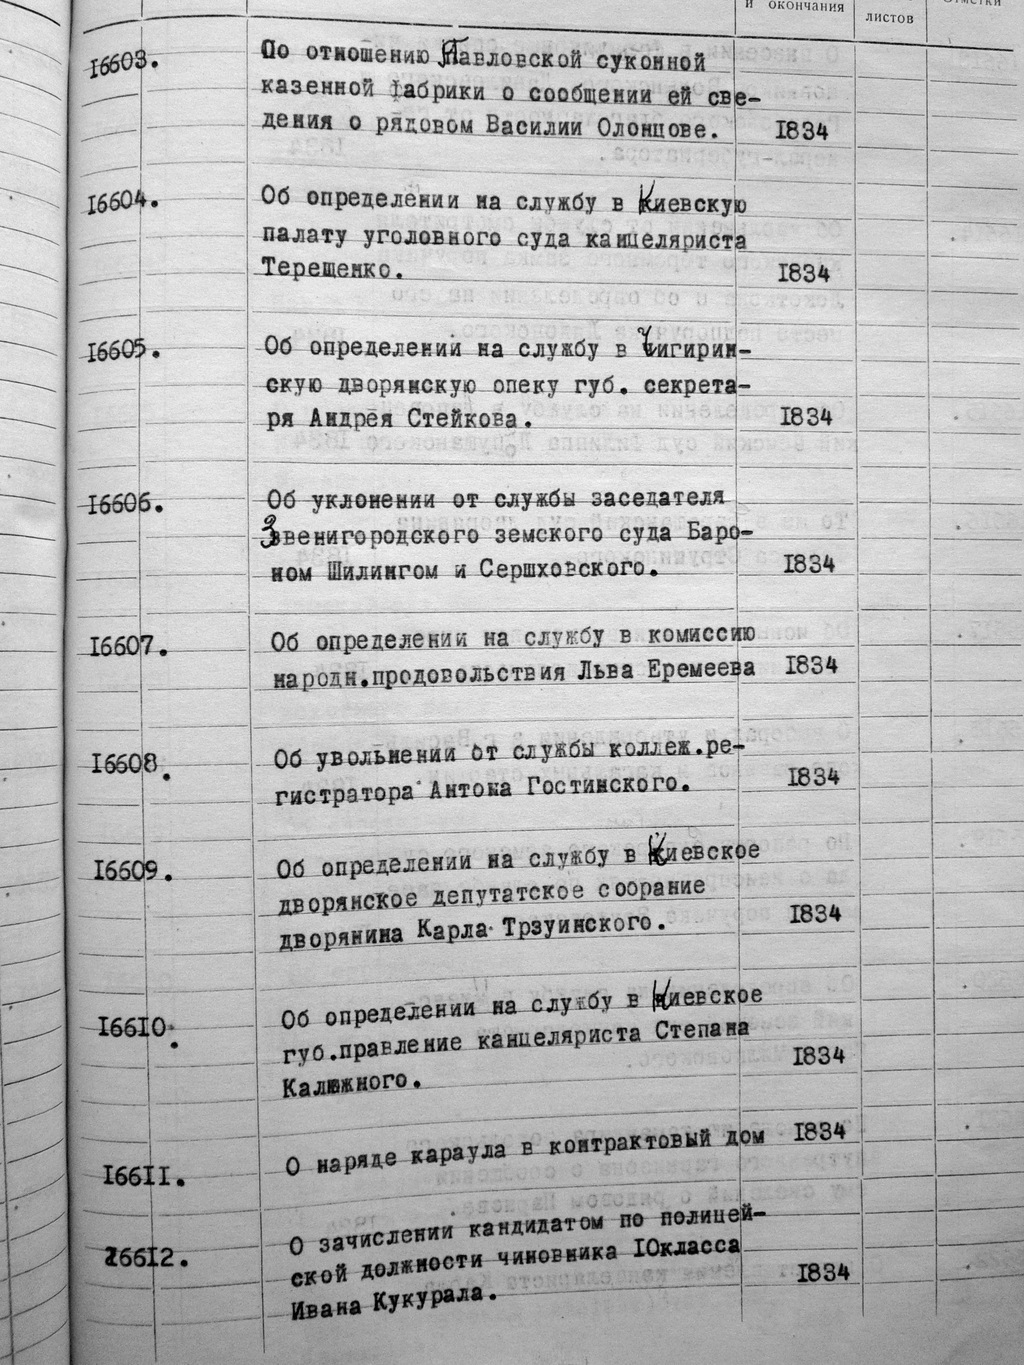 и окончания
листов
Отметки
16603. По отношению Павловской суконной
казенной фабрики о сообщении ей све-
дения о рядовом Василии Олонцове. 1834
16604. Об определении на службу в Киевскую
палату уголовного суда канцеляриста
Терещенко. 1834
16605. Об определений на службу в Чигирин-
скую дворянскую опеку губ. секрета-
ря Андрея Стейкова. 1834
16606. Об уклонении от службы заседателя
Звенигородского земского суда Баро-
ном Шилингом и Сершховского. 1834
16607. Об определении на службу в комиссию
народн.продовольствия Льва Еремеева 1834
16608. Об увольнении от службы коллеж.ре-
гистратора Антона Гостинского. 1834
16609. Об определении на службу в Киевское
дворянское депутатское соорание
дворянина Карла Трзуинского. 1834
16610. Об определении на службу в Киевское
губ.правление канцеляриста Степана
Калюжного. 1834
16611. О наряде караула в контрактовый дом 1834
16612. О зачислении кандидатом по полицей-
ской должности чиновника 10класса
Ивана Кукурала. 1834